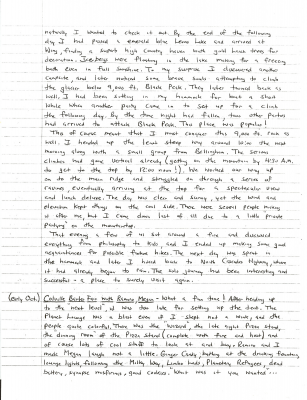 naturally I wanted to check it out. By the end of the following
day I had passed a emerald blue lake and arrived at
Wing, finding a superb high country haven with gold larch trees for
decoration. Icebergs were floating in the lake making for a freezing
bath even in full sunshine. To my surprise I discovered another
campsite, and later noticed some brave souls attempting to climb
the glacier below 9,000 ft. Black Peak. They later turned back as
well. I had been sitting in my hammock for about a short
while when another party came in to set up for a climb
the following day. By the time night had fallen, three other parties
had arrived to attack Black Peak. This place was popular!
This of course meant that I must conquer this 9,000 ft. rock as
well. I headed up the least steep way around the next
morning along with a small group from Bellingham. The serious
climbers had gone vertical already (getting on the mountain by 4:30 A.M.
to get to the top by 12:00 noon!). We worked our way up
on to the main ridge and struggled on through a series of
ravines, eventually arriving at the top for a spectacular view
and lunch dinner. The day was clear and sunny, yet the wind and
elevation kept things on the cool side. There were several people
after me, but I came down last of all due to a little
on the mountaintop.
That evening a few of us sat around a fire and discussed
everything from philosophy to kids, and I ended up making some good
acquaintances for possible future hikes. The next day was spent in
the hammock and later I hiked back to North Cascades Highway, where
it had already begun to rain. The solo journey had been interesting and
successful - a place to surely visit again.
(Early Oct.) What a fun time! After heading up
to the "next level", it was too late for setting up the tent. The
Planet lounge was a blast even if I slept not a wink, and the
people quite colorful. There was the "wizard", the late night Pizza Stand,
the dining room of the Pizza Stand (complete with fire and heat) and
of course lots of cool stuff to look at and buy. Ramiro and I
made Megan laugh not a little: Ginger Candy, butting at the drinking fountain,
lounge lights, following the Milky Way, Planetary Refugees, dead
battery, good cookies. What was it you wanted ...